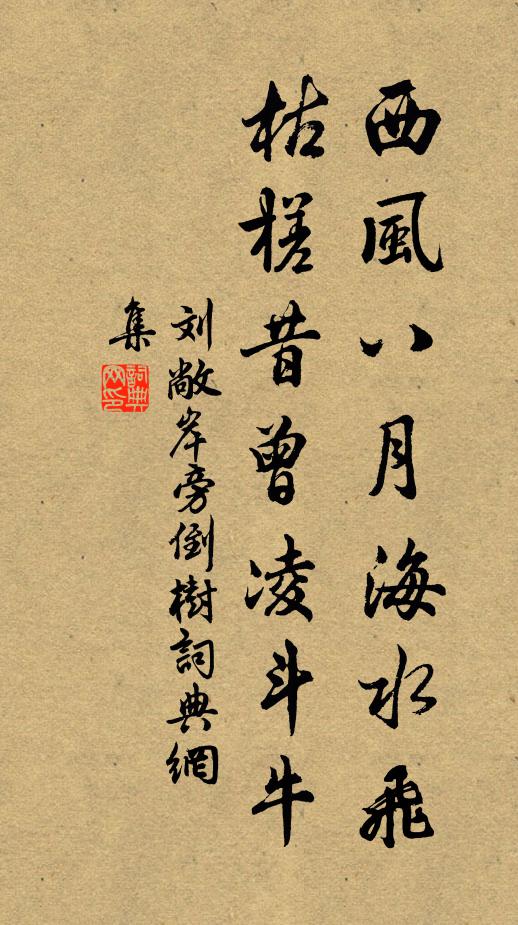 西風八月海水飛
枯槎昔曾凌斗牛
刘敞岸旁倒樹詞典網
集
詞典網印